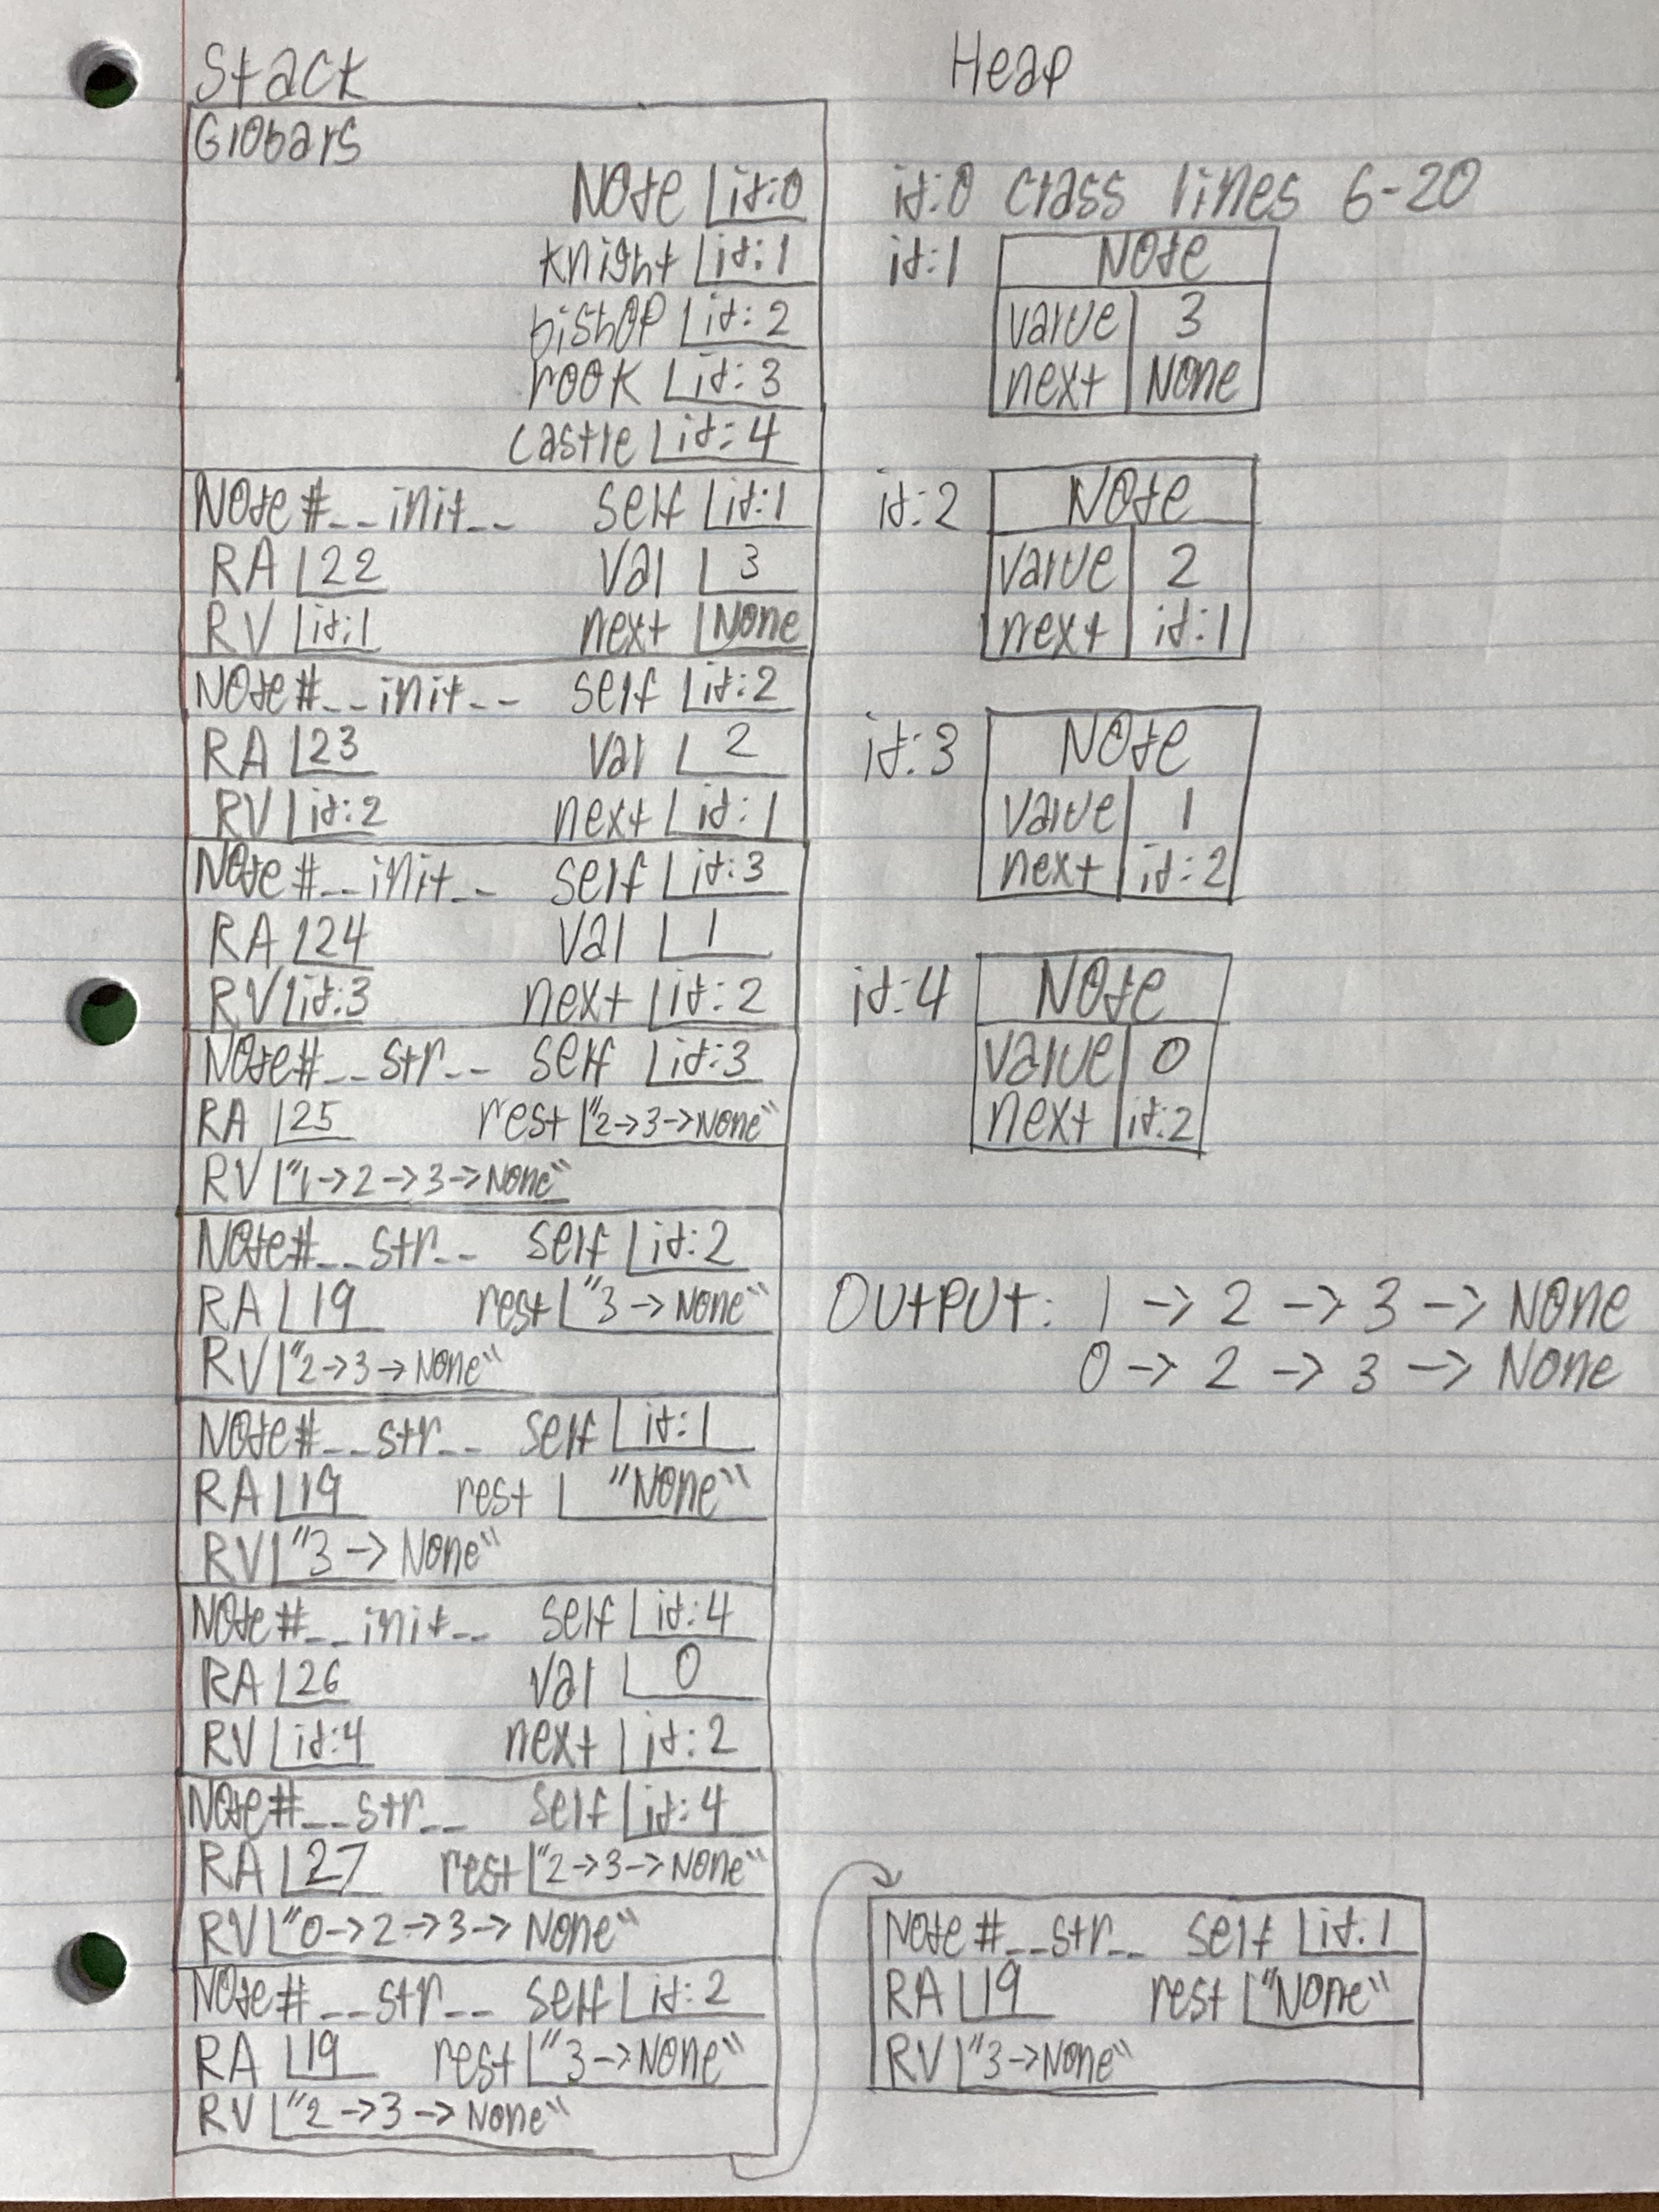 Stack
Globals
Node id:0
knight id:1
bishop id:2
rook id:3
castle id:4
Node#__init__ self id:1
RA 22 val 3
RV id:1 next None
Node#__init__ self id:2
RA 23 val 2
RV id:2 next id:1
Node#__init__ self id:3
RA 24 val 1
RV id:3 next id:2
Node#__str__ self id:3
RA 25 rest "2->3->None"
RV "1->2->3->None"
Node#__str__ self id:2
RA 19 rest "3->None"
RV "2->3->None"
Node#__str__ self id:1
RA 19 rest "None"
RV "3->None"
Node#__init__ self id:4
RA 26 val 0
RV id:4 next id:2
Node#__str__ self id:4
RA 27 rest "2->3->None"
RV "0->2->3->None"
Node#__str__ self id:2
RA 19 rest "3->None"
RV "2->3->None"
Heap
id:0 class lines 6-20
id:1 Node
value 3
next None
id:2 Node
value 2
next id:1
id:3 Node
value 1
next id:2
id:4 Node
value 0
next id:2
OUTPUT: 1 -> 2 -> 3 -> None
0 -> 2 -> 3 -> None
Node#__str__ self id:1
RA 19 rest "None"
RV "3->None"